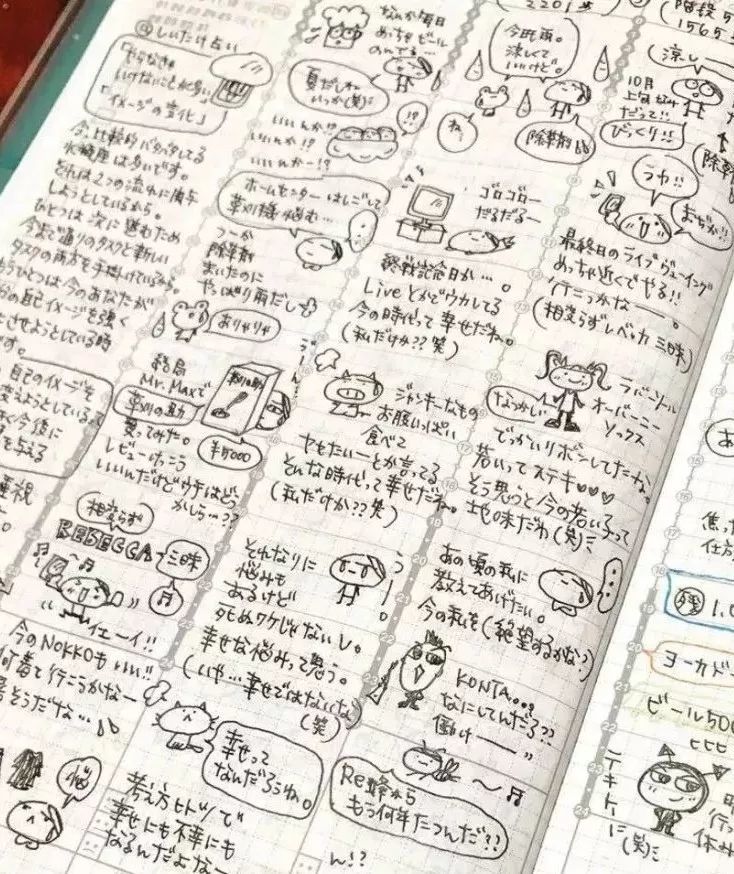 しいたけ占い
「やらなきゃ
いけないことが多い」
「イメージの変化」
今、比較的バタバタしてる
水瓶座は多いです。
それは2つの流れに
しようとしているから。
ひとつは次に進むため
今まで通りのタスクと新しい
タスクの両方を手掛けているから。
もうひとつは今のあなたが
自己イメージを強く
させようとしている時
です。
自己のイメージを
変えようとしている
今後に
を与える
重視
相変らず
REBECCA三昧
イエーイ!!
今のNOKKOもいい!!
何着て行こうかなー
なんか毎日
めっちゃビール
のんでる…
夏だしね
いっか(笑)
いいんか!?
いいんか…!?
いいんかー!?
!?
ホームセンターはしごして
草刈機が悩む…
つーか
除草剤
まいたのに
やっぱり雨だし
ありゃりゃ
結局
Mr.Maxで
草刈の助
買ってみた。
レビューけっこう
いいんだけどウチはどう
かしら…??
草刈の助
¥5000
それなりに
悩みも
あるけど
死ぬワケじゃないし。
幸せな悩みって思う。
(いや…幸せではないな)
(笑)
幸せって
なんだろうね。
考え方ヒトツで
幸せにも不幸にも
なるんだよなー
2201歩
今日雨。
涼しくて
いいけど。
ね。
除草剤
ゴロゴロー
だるだるー
終戦記念日か…。
Liveとかでウカレてる
今の時代って幸せだね。
(私だけか??笑)
ジャンキーなもの
お腹いっぱい
食べて
ヤセたいーとか言ってる
そんな時代って幸せだね。
(私だけか??笑)
あの頃の私に
教えてあげたい。
今の私を(絶望するかな?)
KONTA…。
なにしてんだろ??
働けー
Re:蜂から
もう何年たつんだ??
ん!?
階段5
1565
涼し
10月
上旬なみ
だって!!
びっくり!!
除草
うわ!!
おぢか!!
最終日のライブビューイング
めっちゃ近くでやる!!
行こっかなー。
(相変らずレベッカ三昧)
なつかしい
ラバーソール
オーバーニー
ソックス
でっかいリボンしてたな。
若いってステキ♡♡♡
そう思うと今の若い子って
地味だわ(笑)
1.0
ヨーカド
ビール500
ヒヒヒ
テキトーに(笑)
行っ
休み
17
18
19
20
21
22
23
24